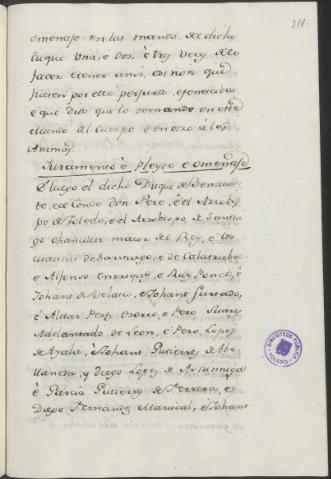 311
omenaje en las manos del dicho
Duque una, è dos, è tres veces de lo
facer è tener ansi, è si non que
fuesen por ello perjuros, è fementidos
è que Dios que lo demande en este
Mundo al cuerpo è en otro à las
Animas.
Juramento è pleyto è omenaje
E luego el dicho Duque de Benaven
te, è el Conde don Pero, è el Arzobis
po de Toledo, è el Arzobispo de Santia
go chanciller maior del Rey, è los
Maestres de Santiago, è de Calatrava
è Alfonso Enrriquez, è Ruy Ponce, è
Johan de Velasco, è Johant Furtado,
è Alvar Perez Osorio, è Pero Suarez
Adelantado de Leon, è Pero Lopez
de Ayala, è Johant Gutierrez de Ave
llaneda, y Diego Lopez de Astunniga
è Garcia Gutierrez de Herrera, è
Diego Fernandez Mariscal, è Johant
BIBLIOTECA PUBLICA